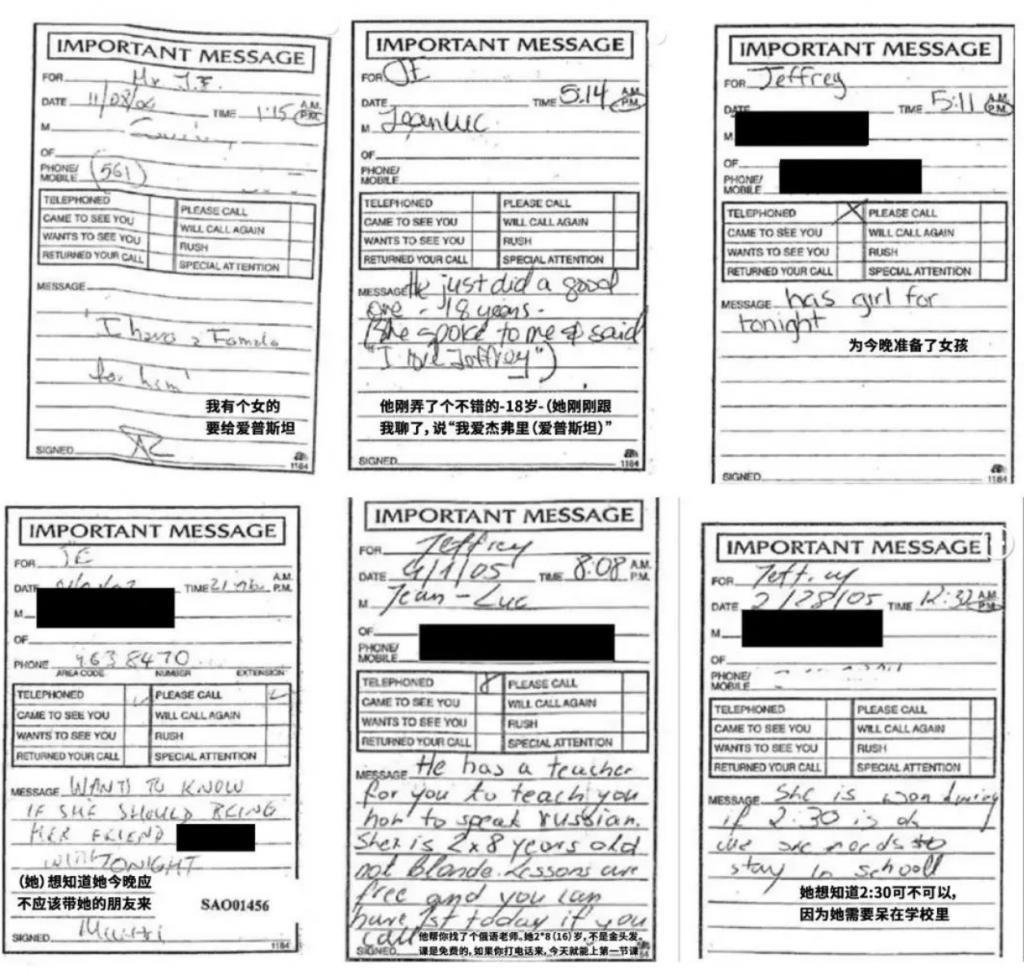 IMPORTANT MESSAGE
FOR Mr. J.E.
DATE 11/08/04 TIME 1:15 A.M. P.M.
M
OF
PHONE/ MOBILE (561)
TELEPHONED PLEASE CALL
CAME TO SEE YOU WILL CALL AGAIN
WANTS TO SEE YOU RUSH
RETURNED YOUR CALL SPECIAL ATTENTION
MESSAGE
"I have a Female
for him"
我有个女的
要给爱普斯坦
SIGNED
1184
IMPORTANT MESSAGE
FOR JE
DATE TIME 5:14 A.M. P.M.
M Jean Luc
OF
PHONE/ MOBILE
TELEPHONED PLEASE CALL
CAME TO SEE YOU WILL CALL AGAIN
WANTS TO SEE YOU RUSH
RETURNED YOUR CALL SPECIAL ATTENTION
MESSAGE He just did a good
one - 18 years -
(She spoke to me & said
"I love Jeffrey")
他刚弄了个不错的-18岁-(她刚刚跟
我聊了,说“我爱杰弗里(爱普斯坦)”
SIGNED
1184
IMPORTANT MESSAGE
FOR Jeffrey
DATE TIME 5:11 A.M. P.M.
M
OF
PHONE/ MOBILE
TELEPHONED X PLEASE CALL
CAME TO SEE YOU WILL CALL AGAIN
WANTS TO SEE YOU RUSH
RETURNED YOUR CALL SPECIAL ATTENTION
MESSAGE has girl for
tonight
为今晚准备了女孩
SIGNED
1184
IMPORTANT MESSAGE
FOR JE
DATE TIME A.M. P.M.
M
OF
PHONE 963 8470
AREA CODE NUMBER EXTENSION
TELEPHONED PLEASE CALL
CAME TO SEE YOU WILL CALL AGAIN
WANTS TO SEE YOU RUSH
RETURNED YOUR CALL SPECIAL ATTENTION
MESSAGE WANTS TO KNOW
IF SHE SHOULD BRING
HER FRIEND
WITH TONIGHT
(她)想知道她今晚应
不应该带她的朋友来
SAO01456
SIGNED
1184
IMPORTANT MESSAGE
FOR Jeffrey
DATE 4/1/05 TIME 8:08 A.M. P.M.
M Jean-Luc
OF
PHONE/ MOBILE
TELEPHONED PLEASE CALL
CAME TO SEE YOU WILL CALL AGAIN
WANTS TO SEE YOU RUSH
RETURNED YOUR CALL SPECIAL ATTENTION
MESSAGE He has a teacher
for you to teach you
how to speak russian.
She is 2x8 years old
not blonde. Lessons are
free and you can
have 1st today if you
call
他帮你找了个俄语老师。她2*8(16)岁,不是金头发。
课是免费的,如果你打电话来,今天就能上第一节课
SIGNED
IMPORTANT MESSAGE
FOR Jeffrey
DATE 2/28/05 TIME 12:32 A.M. P.M.
M
OF
PHONE/ MOBILE
TELEPHONED PLEASE CALL
CAME TO SEE YOU WILL CALL AGAIN
WANTS TO SEE YOU RUSH
RETURNED YOUR CALL SPECIAL ATTENTION
MESSAGE She is wondering
if 2:30 is ok
she needs to
stay in school
她想知道2:30可不可以,
因为她需要呆在学校里
SIGNED
1184